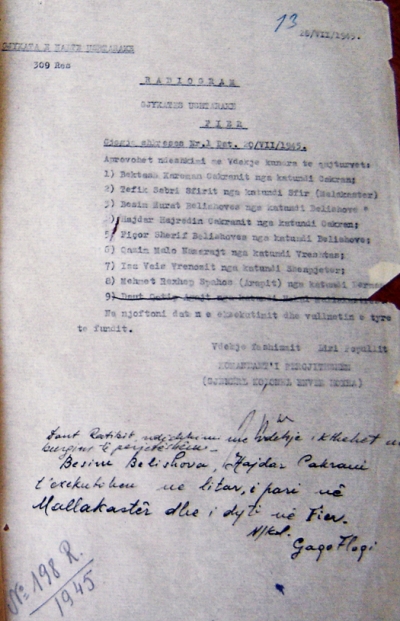 13
20/VII/1945.
GJYKATA E NALTE USHTARAKE
309 Res
RADIOGRAM
GJYKATES USHTARAKE
FIER
Nr.3 Dat. 20/VII/1945.
Aprovohet ndeshkimi me Vdekje kundra te qayturvet:
1) Bektash Cakranit nga katundi Cakran;
2) Tefik Sebri Sfirit nga katundi Sfir
3) Besim Murat Belishoves nga katundi Belishove
4) Hajdar Hajredin Cakranit nga katundi Cakran;
5) Figor Sherif Belishoves nga katundi Belishove;
6) Qasim Halo nga katundi
7) Isa Veis Vrenosit nga katundi Shenpjeter;
8) Mehmet Rexhep Spahos (Arapit) nga katundi
9) Daut
Na njoftoni dat n e eksekutimit dhe vullnetin e tyre
te fundit.
Vdekje fashizmit Liri Popullit
KOMANDANT'I PERGJITHSHEM
(GJENERAL KOLONEL ENVER HOXHA)
Daut ndeshkimi me Vdekje i kthehet
burgim të përjetëshëm.
Besim Belishova, Hajdar Cakrani
t'exekutohen në litar, i pari në
Mallakastër dhe i dyti në Fier.
N/kol.
Gago Flogi
No 198 R.
1945